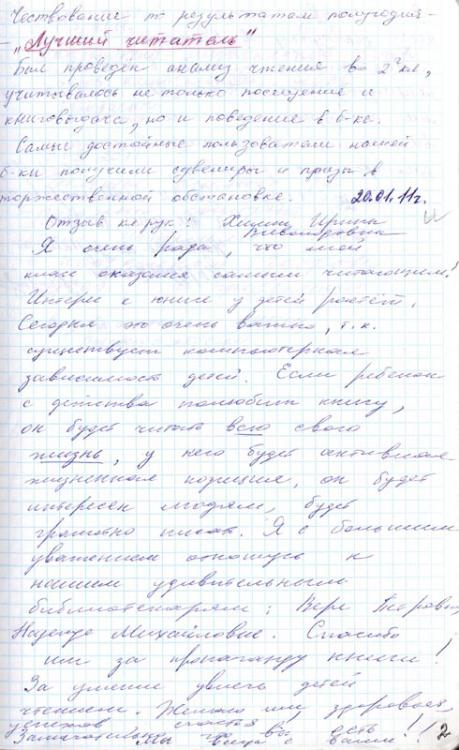 Чествование по результатам полугодия –
– „Лучший читатель"
Был проведён анализ чтения во 2г кл,
учитывалось не только посещение и
книговыдача, но и поведение в б-ке.
Самые достойные пользователи нашей
б-ки получили сувениры и призы в
торжественной обстановке. 20.01.11г.
Отзыв кл. рук.: Ирина
Я очень рада, что мой
класс оказался самым читающим!
Интерес к книге у детей растёт.
Сегодня это очень важно, т.к.
существует компьютерная
зависимость детей. Если ребенок
с детства полюбит книгу,
он будет читать всю свою
жизнь, у него будет активная
жизненная позиция, он будет
интересен людям, будет
грамотно писать. Я с большим
уважением отношусь к
нашим удивительным
библиотекарям: Вере Петровне,
Надежде Михайловне. Спасибо
им за пропаганду книги!
За умение увлечь детей
чтением. Желаю им здоровья,
успехов, счастья!
Замечательно, что вы есть!
Мы вами!! 2